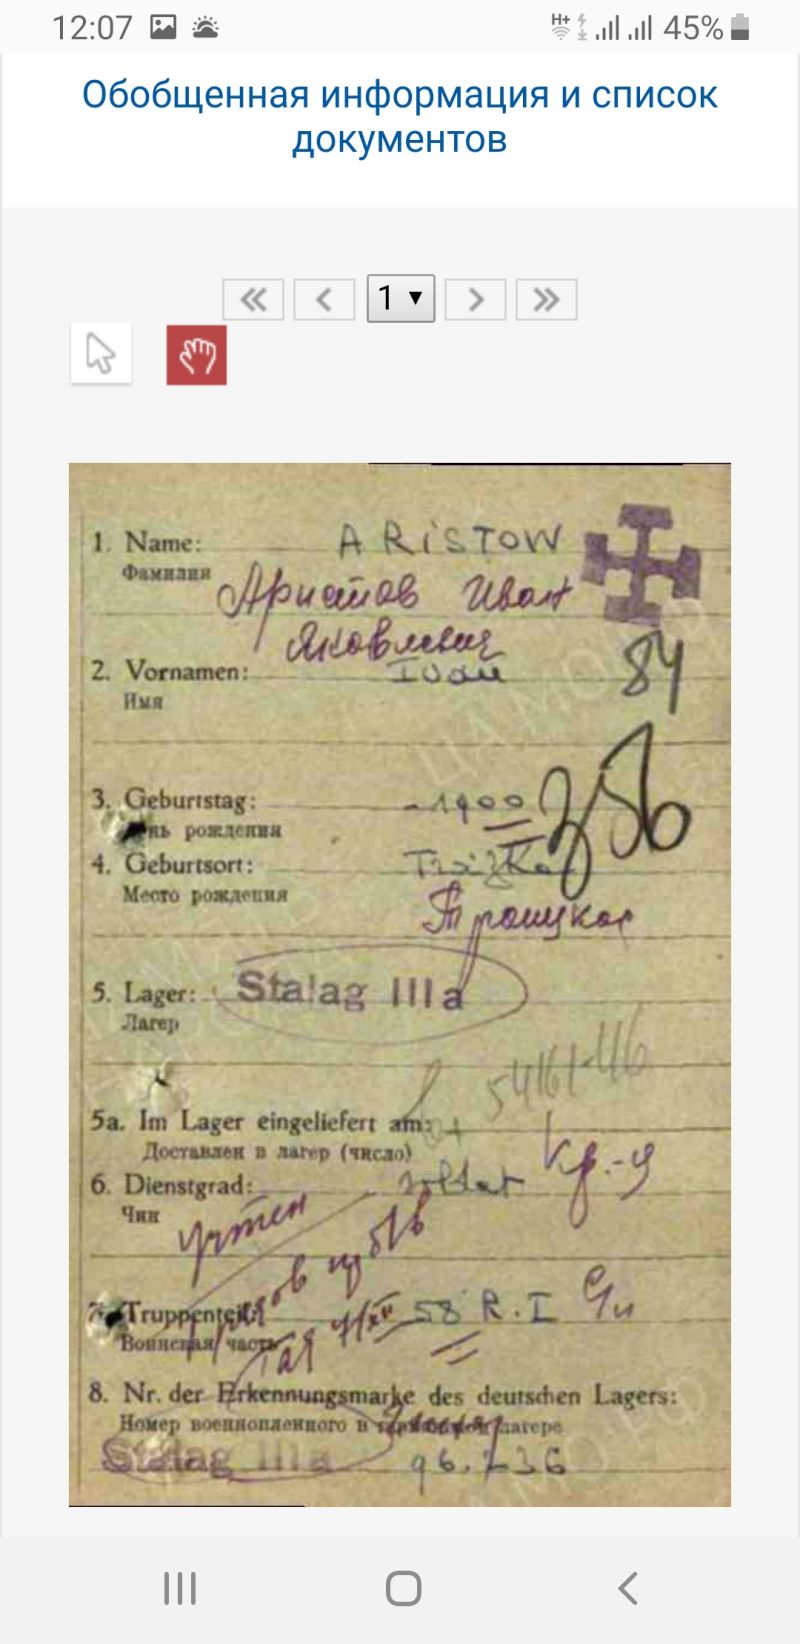 12:07 H+ 45%
Обобщенная информация и список
документов
1
1. Name: ARISTOW
Фамилия Аристов Иван
Яковлевич
2. Vornamen: Iwan 84
Имя
3. Geburtstag: - 1900 356
День рождения
4. Geburtsort:
Место рождения
5. Lager: Stalag IIIa
Лагерь
54161-46
5a. Im Lager eingeliefert am:
Доставлен в лагерь (число)
6. Dienstgrad: soldat
Чин учтен
7. Truppenteil: 58 R. I
Воинская часть
8. Nr. der Erkennungsmarke des deutschen Lagers:
Номер военнопленного в лагере
Stalag IIIa 96.236
ЦАМО РФ